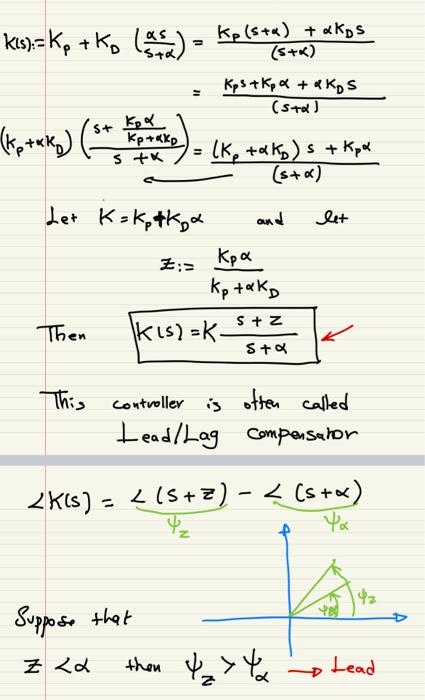 K(s):= K_p + K_D (αs/(s+α)) = (K_p(s+α) + αK_D s)/(s+α)
= (K_p s + K_p α + αK_D s)/(s+α)
(K_p+αK_D) ((s + K_pα/(K_p+αK_D))/(s+α)) = ((K_p+αK_D) s + K_pα)/(s+α)
Let K = K_p + K_Dα and let
z := K_pα/(K_p + αK_D)
Then K(s) = K (s+z)/(s+α)
This controller is often called
Lead/Lag compensator
∠K(s) = ∠(s+z) − ∠(s+α)
ψ_z ψ_α
ψ_α ψ_z
Suppose that
z < α then ψ_z > ψ_α → Lead